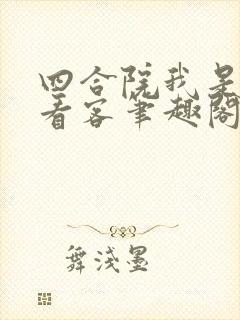 四合院我是
看客笔趣阁
舞浅墨